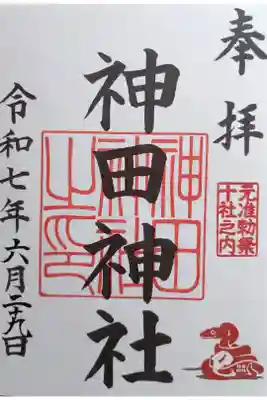 奉拝
元准勅祭
十社之内
神田神社
神田
神社
之印
令和七年六月二十九日